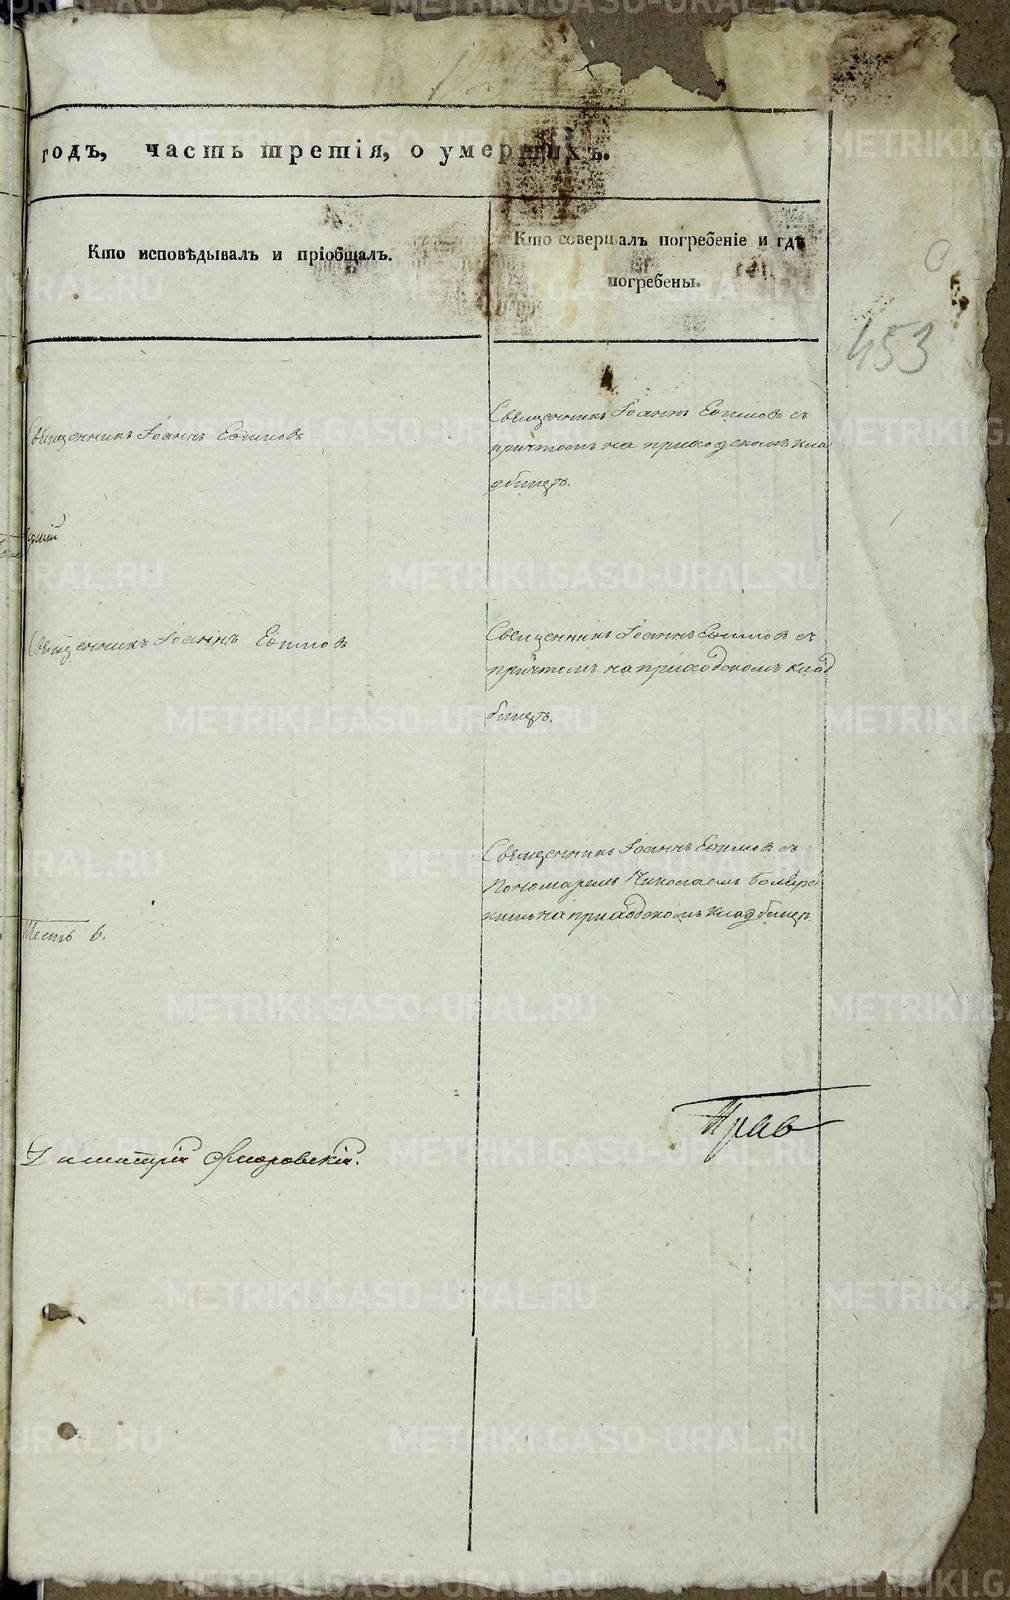 годъ, часть третія, о умершихъ.
Кто исповѣдывалъ и пріобщалъ.
Кто совершалъ погребеніе и гдѣ
погребены.
453
Священникъ Іоаннъ Ефимовъ
Священникъ Іоаннъ Ефимовъ съ
причтомъ на приходскомъ кла
дбищѣ.
Священникъ Іоаннъ Ефимовъ
Священникъ Іоаннъ Ефимовъ съ
причтомъ на приходскомъ клад
бищѣ.
Священникъ Іоаннъ Ефимовъ съ
Пономаремъ Николаемъ
на приходскомъ кладбищѣ
Шесть 6.
Димитрій Флоровскій.
METRIKI.GASO-URAL.RU